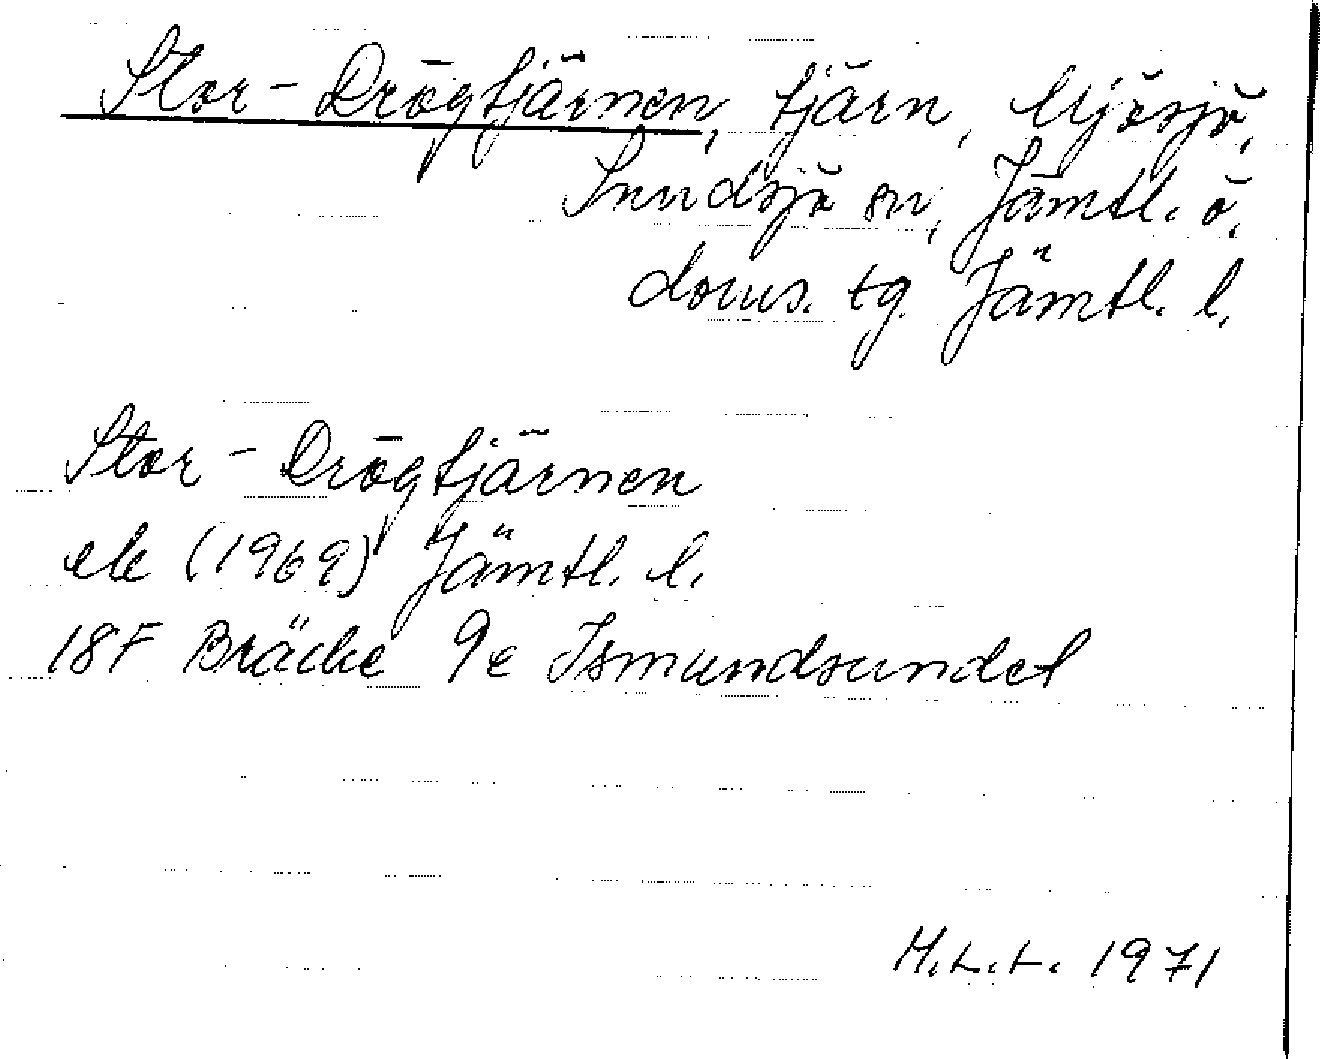 Stor-Drögtjärnen, tjärn, Mjösjö,
Sundsjö sn, Jämtl. ö.
doms. tg. Jämtl. l.
Stor-Drögtjärnen
ek (1969) Jämtl. l.
18F Bräcke 9e Ismundsundet
M.L.L. 1971